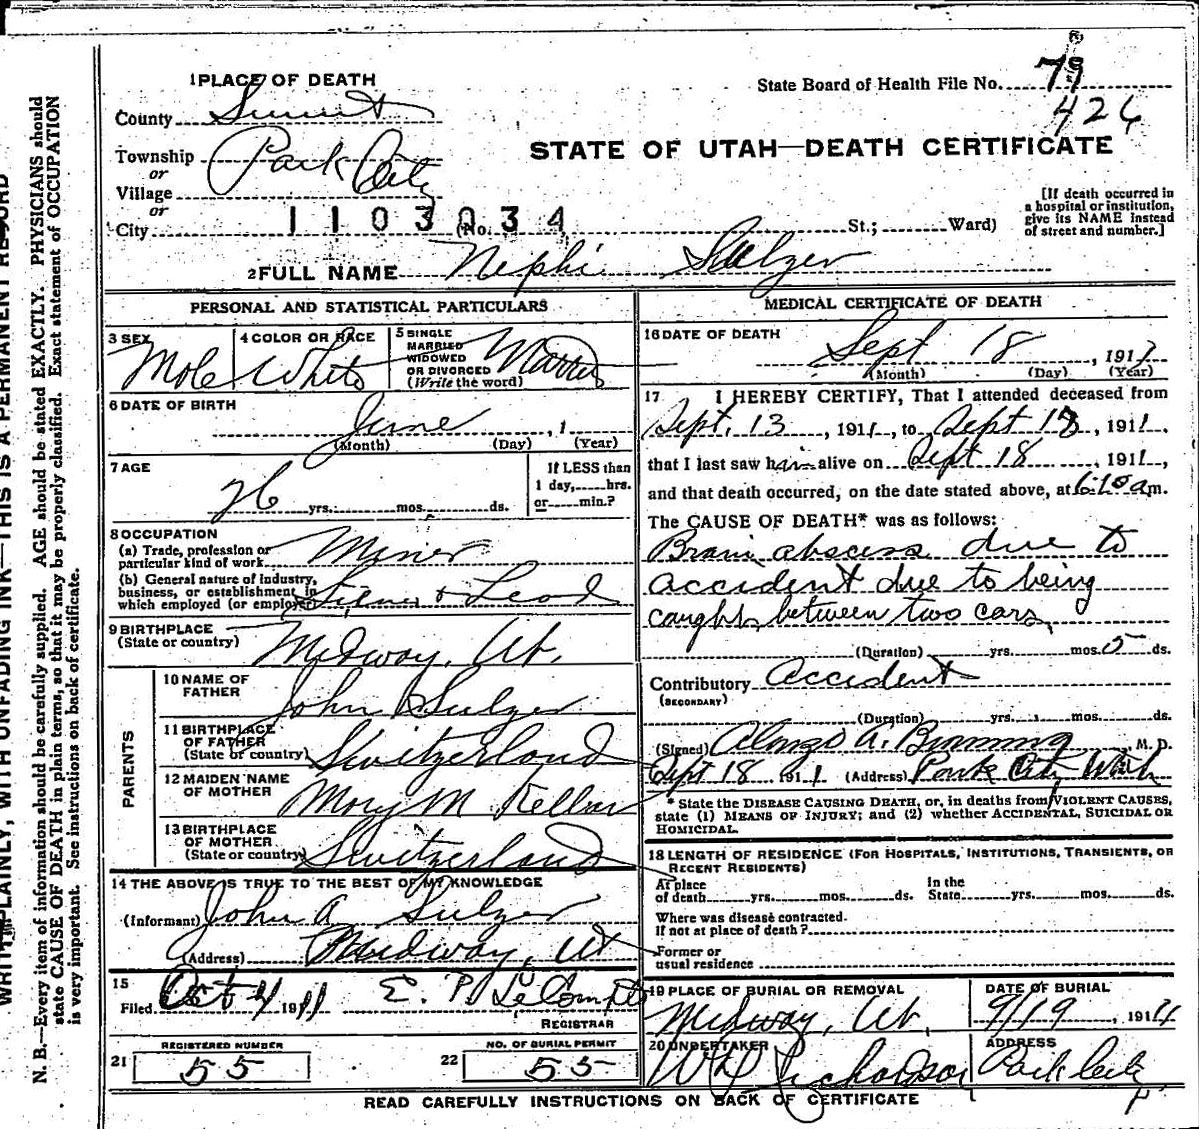 1 PLACE OF DEATH
State Board of Health File No. 79
426
County Summit
STATE OF UTAH—DEATH CERTIFICATE
Township or Village Park City
or
City 1103034 (No. St.; Ward)
[If death occurred in a hospital or institution, give its NAME instead of street and number.]
2 FULL NAME Nephi Sulzer
PERSONAL AND STATISTICAL PARTICULARS
3 SEX Male
4 COLOR OR RACE White
5 SINGLE MARRIED WIDOWED OR DIVORCED (Write the word) Married
6 DATE OF BIRTH June , 1
(Month) (Day) (Year)
7 AGE 26 yrs. mos. ds.
If LESS than 1 day, hrs. or min.?
8 OCCUPATION
(a) Trade, profession or particular kind of work Miner
(b) General nature of industry, business, or establishment in which employed (or employer) Silver & Lead
9 BIRTHPLACE (State or country) Midway, Ut.
PARENTS
10 NAME OF FATHER John Sulzer
11 BIRTHPLACE OF FATHER (State or country) Switzerland
12 MAIDEN NAME OF MOTHER Mary M Keller
13 BIRTHPLACE OF MOTHER (State or country) Switzerland
14 THE ABOVE IS TRUE TO THE BEST OF MY KNOWLEDGE
(Informant) John A. Sulzer
(Address) Midway, Ut
15
Filed Oct 4 1911 E. P. LeCompte
REGISTRAR
REGISTERED NUMBER
21 55
NO. OF BURIAL PERMIT
22 55
MEDICAL CERTIFICATE OF DEATH
16 DATE OF DEATH
Sept 18 , 191
(Month) (Day) (Year)
17 I HEREBY CERTIFY, That I attended deceased from
Sept. 13 , 1911, to Sept 18, 1911,
that I last saw him alive on Sept 18 , 1911,
and that death occurred, on the date stated above, at am.
The CAUSE OF DEATH* was as follows:
Brain abscess due to
accident due to being
caught between two cars.
(Duration) yrs. mos. 5 ds.
Contributory Accident
(SECONDARY)
(Duration) yrs. mos. ds.
(Signed) Alonzo A. , M. D.
Sept 18 1911 (Address) Park City Utah
* State the DISEASE CAUSING DEATH, or, in deaths from VIOLENT CAUSES,
state (1) MEANS OF INJURY; and (2) whether ACCIDENTAL, SUICIDAL OR
HOMICIDAL.
18 LENGTH OF RESIDENCE (FOR HOSPITALS, INSTITUTIONS, TRANSIENTS, OR
RECENT RESIDENTS)
At place of death yrs. mos. ds. In the State yrs. mos. ds.
Where was disease contracted. If not at place of death?
Former or usual residence
19 PLACE OF BURIAL OR REMOVAL Midway, Ut.
DATE OF BURIAL 9/19 , 191
20 UNDERTAKER Nicholson
ADDRESS Park City
READ CAREFULLY INSTRUCTIONS ON BACK OF CERTIFICATE
WRITE PLAINLY, WITH UNFADING INK—THIS IS A PERMANENT RECORD
N. B.—Every item of information should be carefully supplied. AGE should be stated EXACTLY. PHYSICIANS should
state CAUSE OF DEATH in plain terms, so that it may be properly classified. Exact statement of OCCUPATION
is very important. See instructions on back of certificate.